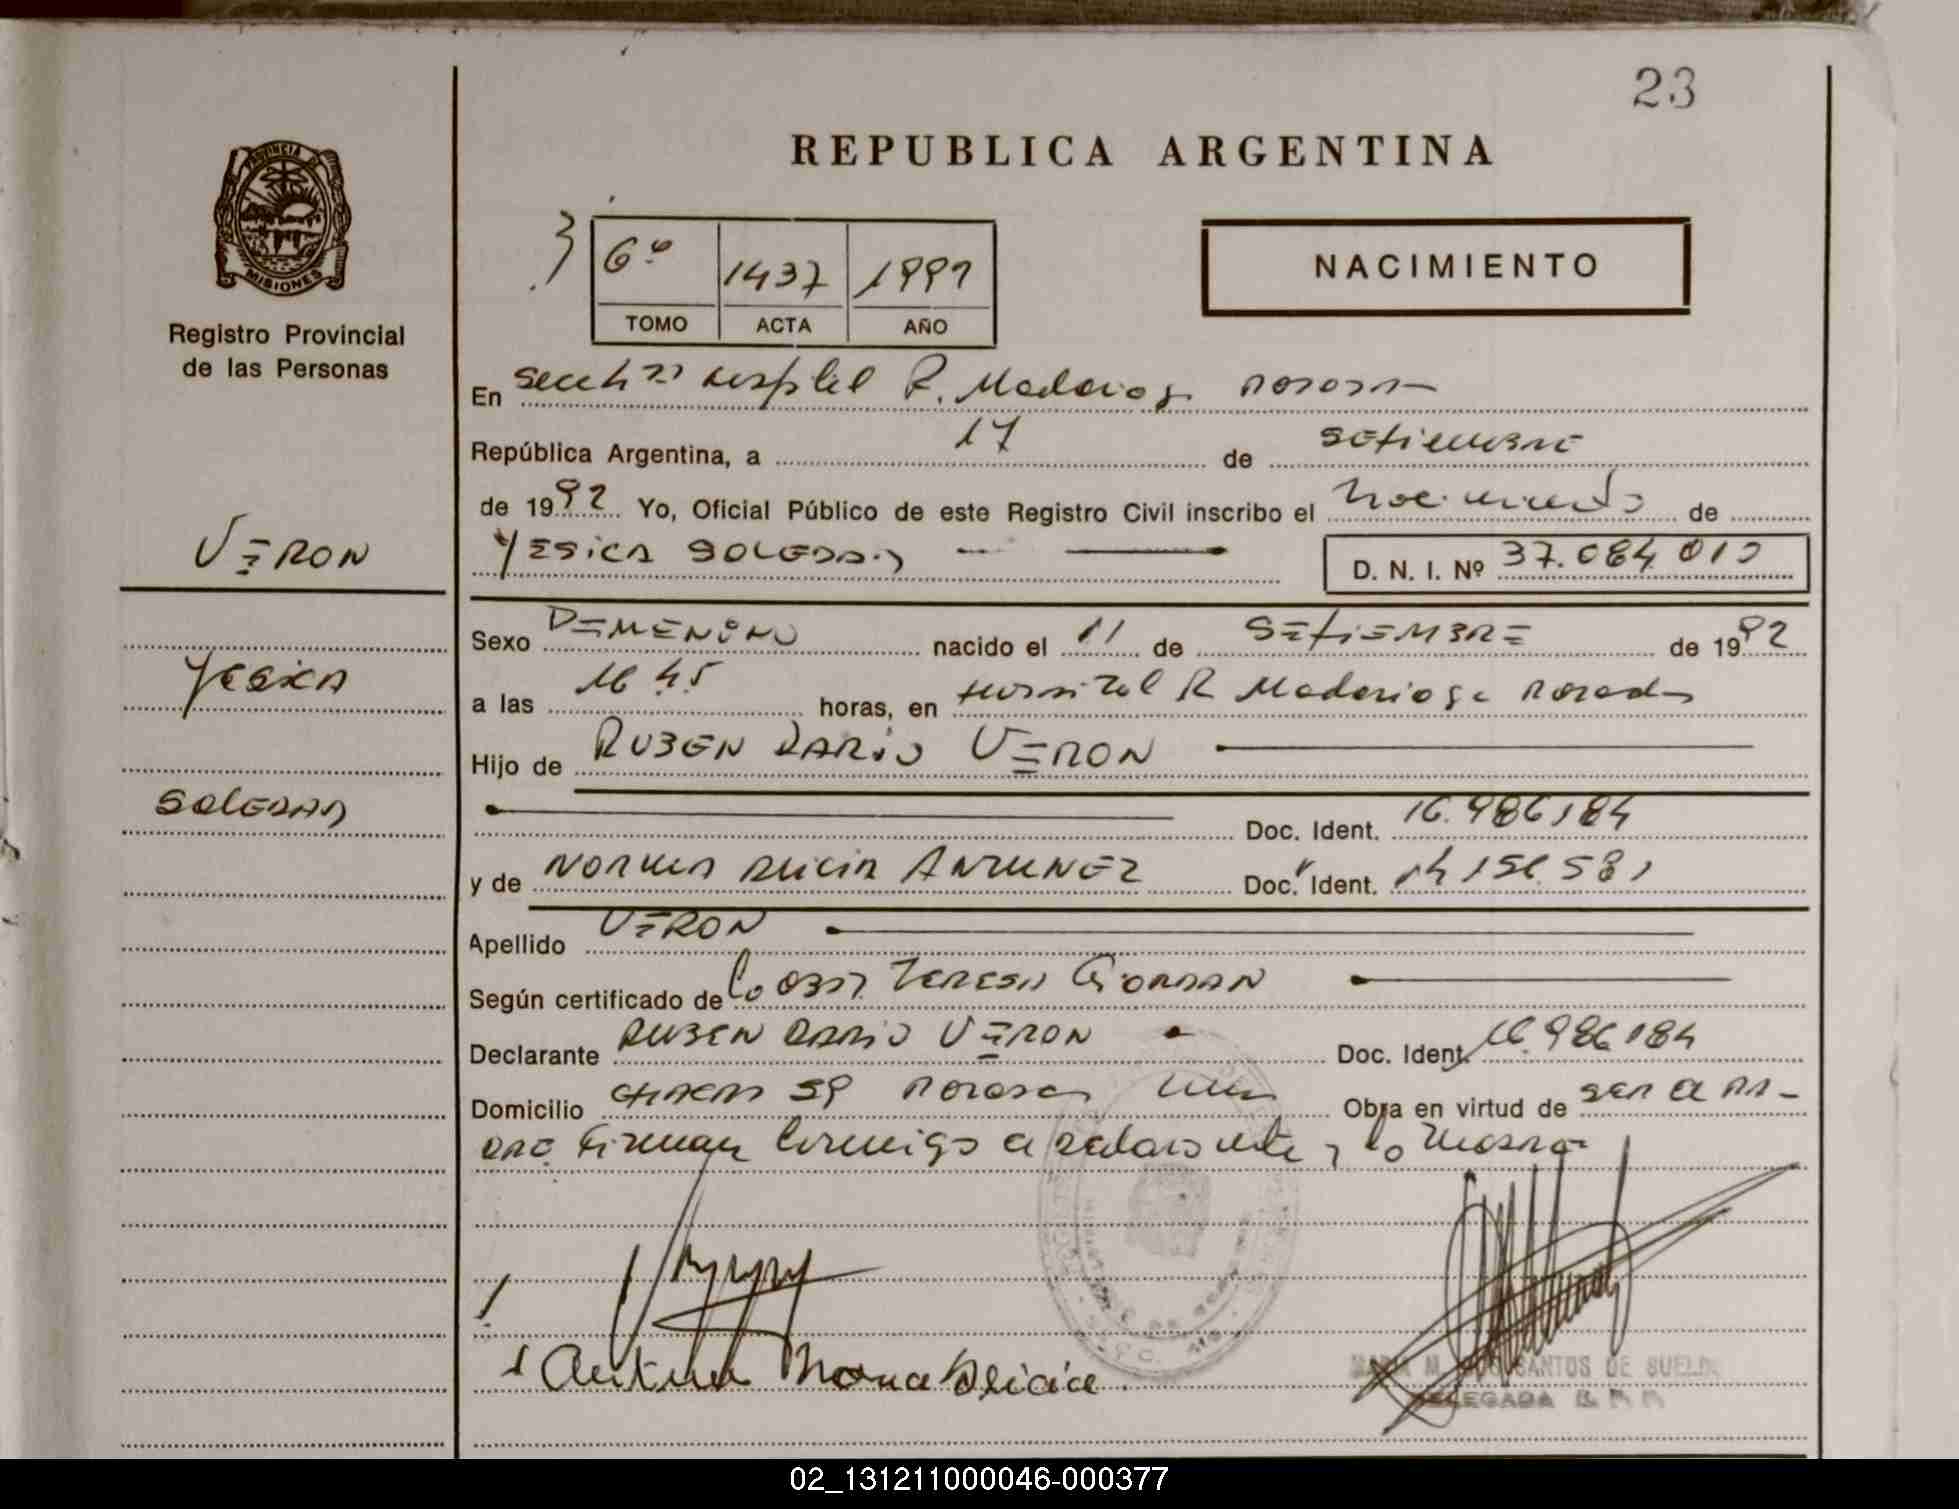 23
REPUBLICA ARGENTINA
PROVINCIA DE
MISIONES
Registro Provincial
de las Personas
6º 1437 1992
TOMO ACTA AÑO
NACIMIENTO
En Hospital R. Madariaga Posadas
República Argentina, a 17 de SETIEMBRE
de 1992 Yo, Oficial Público de este Registro Civil inscribo el nacimiento de
VERON
YESICA SOLEDAD D. N. I. Nº 37.084.010
Sexo FEMENINO nacido el 11 de SETIEMBRE de 1992
YESICA
a las 16 45 horas, en Hospital R Madariaga Posadas
Hijo de RUBEN DARIO VERON
SOLEDAD
Doc. Ident. 16.986.184
y de NORMA ALICIA ANTUNEZ Doc. Ident. 14 156.581
Apellido VERON
Según certificado de la OBST. TERESA GIORDAN
Declarante RUBEN DARIO VERON Doc. Ident. 16.986.184
Domicilio 39 POSADAS Obra en virtud de SER EL PA-
DRE Firman conmigo el declarante y la madre
Antunez Norma Alicia
MARIA M. SANTOS DE SUELDO
DELEGADA
02_131211000046-000377